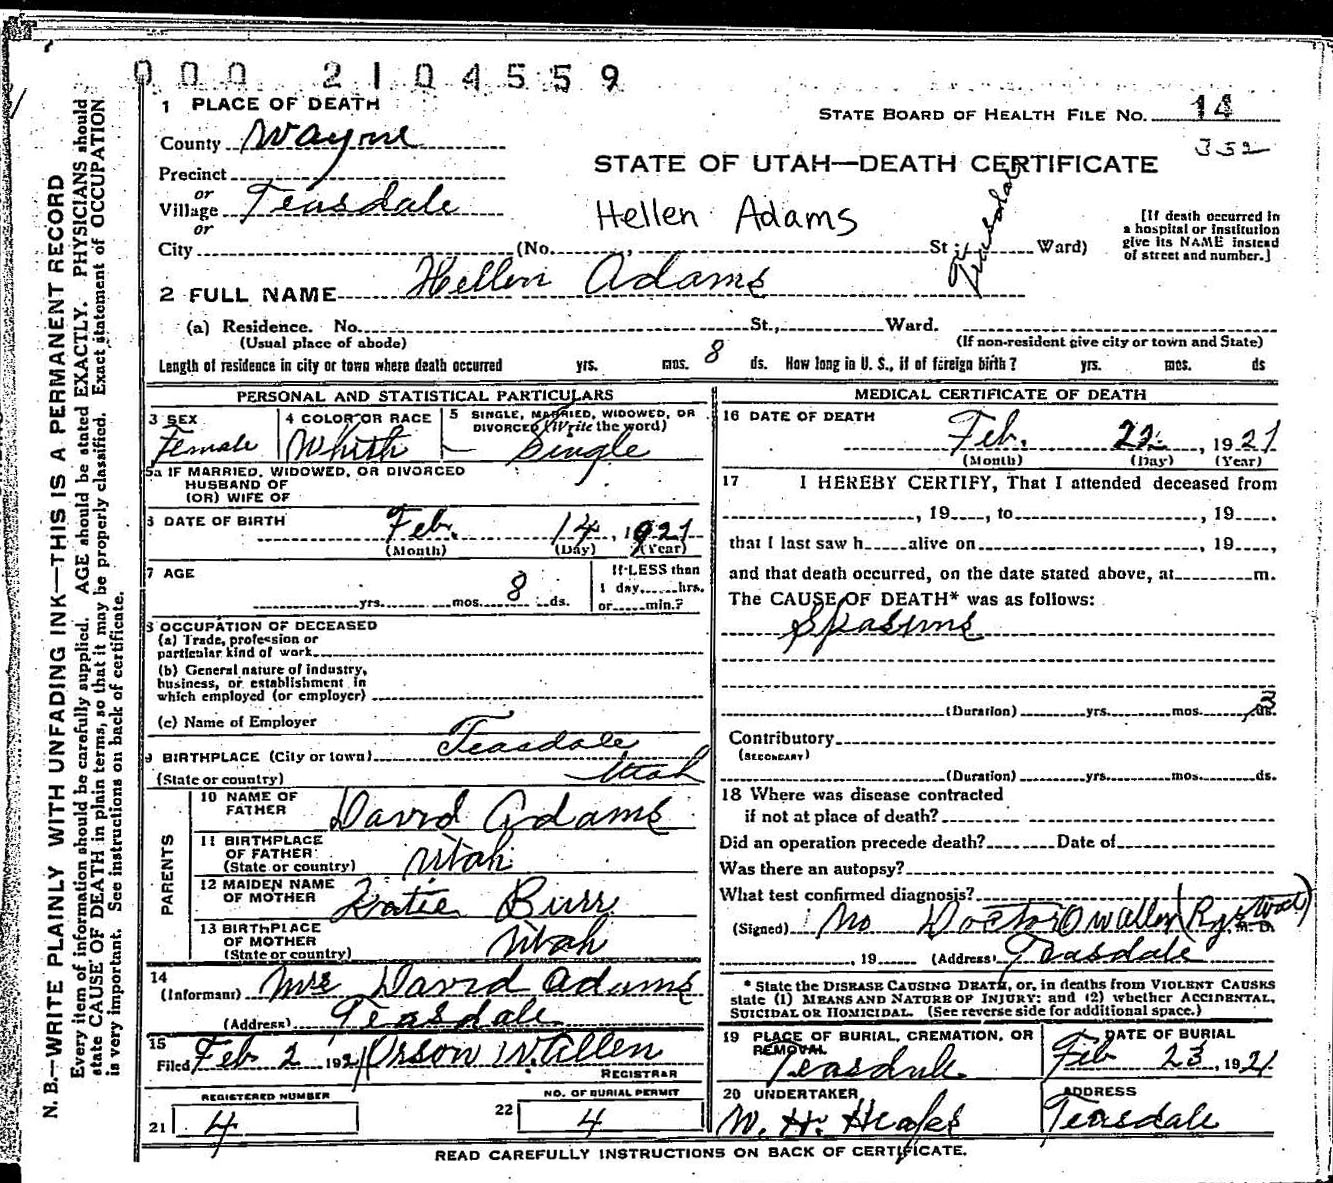 000 2104559
1 PLACE OF DEATH
STATE BOARD OF HEALTH FILE NO. 14
County Wayne
352
Precinct
STATE OF UTAH—DEATH CERTIFICATE
or
Village Teasdale
or
Hellen Adams
Teasdale
[If death occurred in a hospital or institution give its NAME instead of street and number.]
City (No. , St.; Ward)
2 FULL NAME Hellen Adams
(a) Residence. No. St., Ward.
(Usual place of abode) (If non-resident give city or town and State)
Length of residence in city or town where death occurred yrs. mos. 8 ds. How long in U. S., if of foreign birth? yrs. mos. ds
PERSONAL AND STATISTICAL PARTICULARS
3 SEX
Female
4 COLOR OR RACE
Whith
5 SINGLE, MARRIED, WIDOWED, OR
DIVORCED (Write the word)
Single
5a IF MARRIED, WIDOWED, OR DIVORCED
HUSBAND OF
(OR) WIFE OF
6 DATE OF BIRTH Feb. 14, 1921
(Month) (Day) (Year)
7 AGE
yrs. mos. 8 ds.
If LESS than
1 day hrs.
or min.?
8 OCCUPATION OF DECEASED
(a) Trade, profession or
particular kind of work
(b) General nature of industry,
business, or establishment in
which employed (or employer)
(c) Name of Employer
9 BIRTHPLACE (City or town) Teasdale
(State or country) Utah
PARENTS
10 NAME OF
FATHER David Adams
11 BIRTHPLACE
OF FATHER
(State or country) Utah
12 MAIDEN NAME
OF MOTHER Katie Burr
13 BIRTHPLACE
OF MOTHER
(State or country) Utah
14
(Informant) Mrs David Adams
(Address) Teasdale
15
Filed Feb 2 1921 Orson W. Allen
REGISTRAR
REGISTERED NUMBER
21 4
NO. OF BURIAL PERMIT
22 4
MEDICAL CERTIFICATE OF DEATH
16 DATE OF DEATH Feb. 22, 1921
(Month) (Day) (Year)
17 I HEREBY CERTIFY, That I attended deceased from
, 19 , to , 19 .
that I last saw h alive on , 19 ,
and that death occurred, on the date stated above, at m.
The CAUSE OF DEATH* was as follows:
Spasims
(Duration) yrs. mos. ds.
Contributory
(SECONDARY)
(Duration) yrs. mos. ds.
18 Where was disease contracted
if not at place of death?
Did an operation precede death? Date of
Was there an autopsy?
What test confirmed diagnosis?
(Signed) No Doctor O W Allen M. D.
, 19 (Address) Teasdale
* State the DISEASE CAUSING DEATH, or, in deaths from VIOLENT CAUSES
state (1) MEANS AND NATURE OF INJURY; and (2) whether ACCIDENTAL,
SUICIDAL OR HOMICIDAL. (See reverse side for additional space.)
19 PLACE OF BURIAL, CREMATION, OR
REMOVAL
Teasdale
DATE OF BURIAL
Feb 23, 1921
20 UNDERTAKER
ADDRESS
Teasdale
READ CAREFULLY INSTRUCTIONS ON BACK OF CERTIFICATE.
N. B.—WRITE PLAINLY WITH UNFADING INK—THIS IS A PERMANENT RECORD
Every item of information should be carefully supplied. AGE should be stated EXACTLY. PHYSICIANS should
state CAUSE OF DEATH in plain terms, so that it may be properly classified. Exact statement of OCCUPATION
is very important. See instructions on back of certificate.